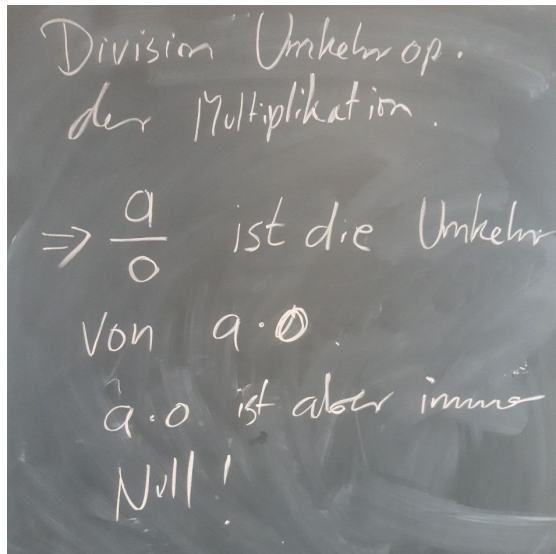 Division Umkehrop.
der Multiplikation.
⇒ a/0 ist die Umkehr
von a·0.
a·0 ist aber immer
Null!